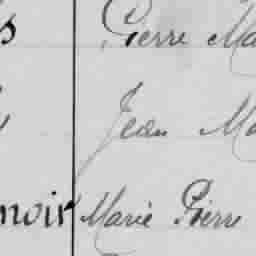 Pierre Ma
Jean Ma
noir Marie Pierre